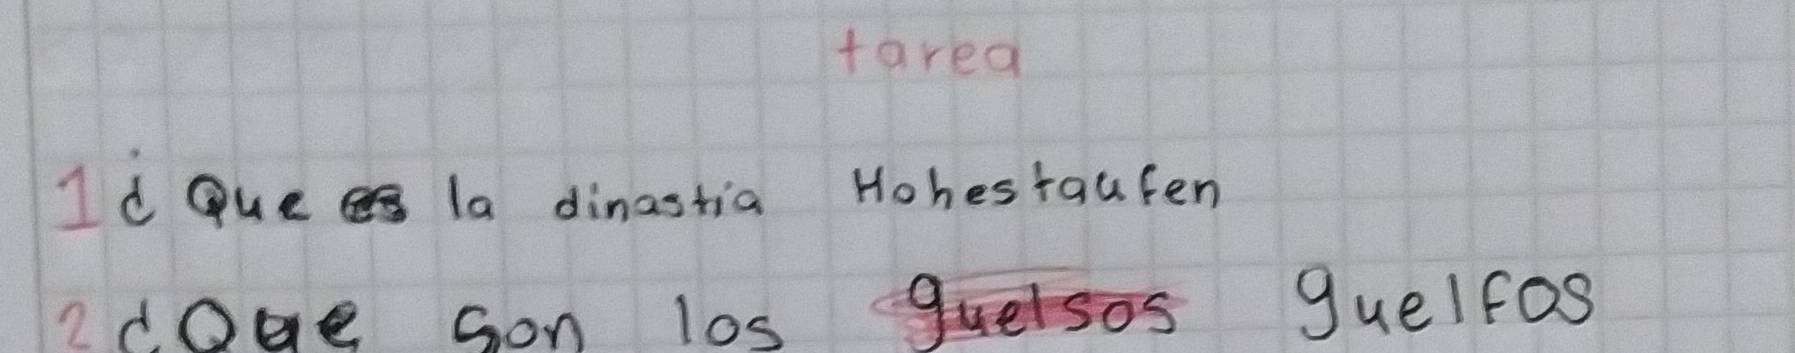 tarea
1 ¿Que es la dinastia Hohestaufen
2 ¿Que son los guelsos guelfos